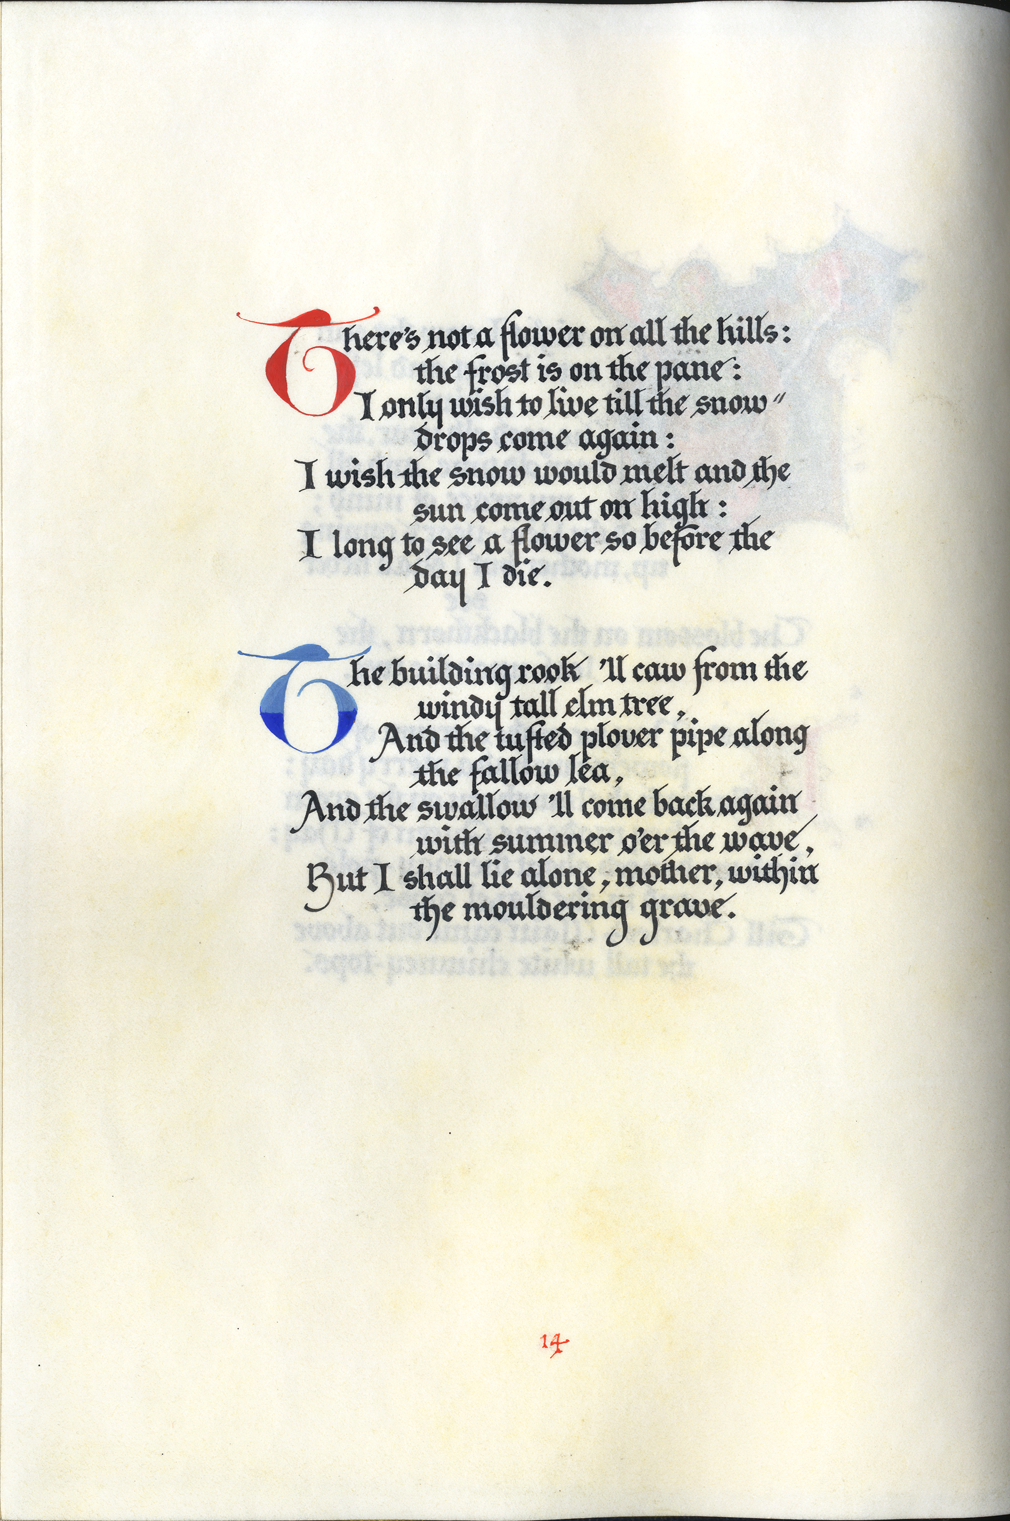 There's not a flower on all the hills:
the frost is on the pane:
I only wish to live till the snow〃
drops come again:
I wish the snow would melt and the
sun come out on high:
I long to see a flower so before the
day I die.
The building rook 'll caw from the
windy tall elm tree,
And the tufted plover pipe along
the fallow lea,
And the swallow 'll come back again
with summer o'er the wave,
But I shall lie alone, mother, within
the mouldering grave.
14